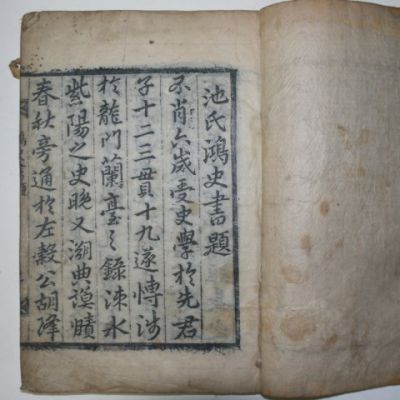 池氏鴻史書題
不肖六歲受史學於先君
子十二三貫十九遂愽涉
於龍門蘭臺之錄涑水
紫陽之史晩又溯典謨賾
春秋旁通於左穀公胡